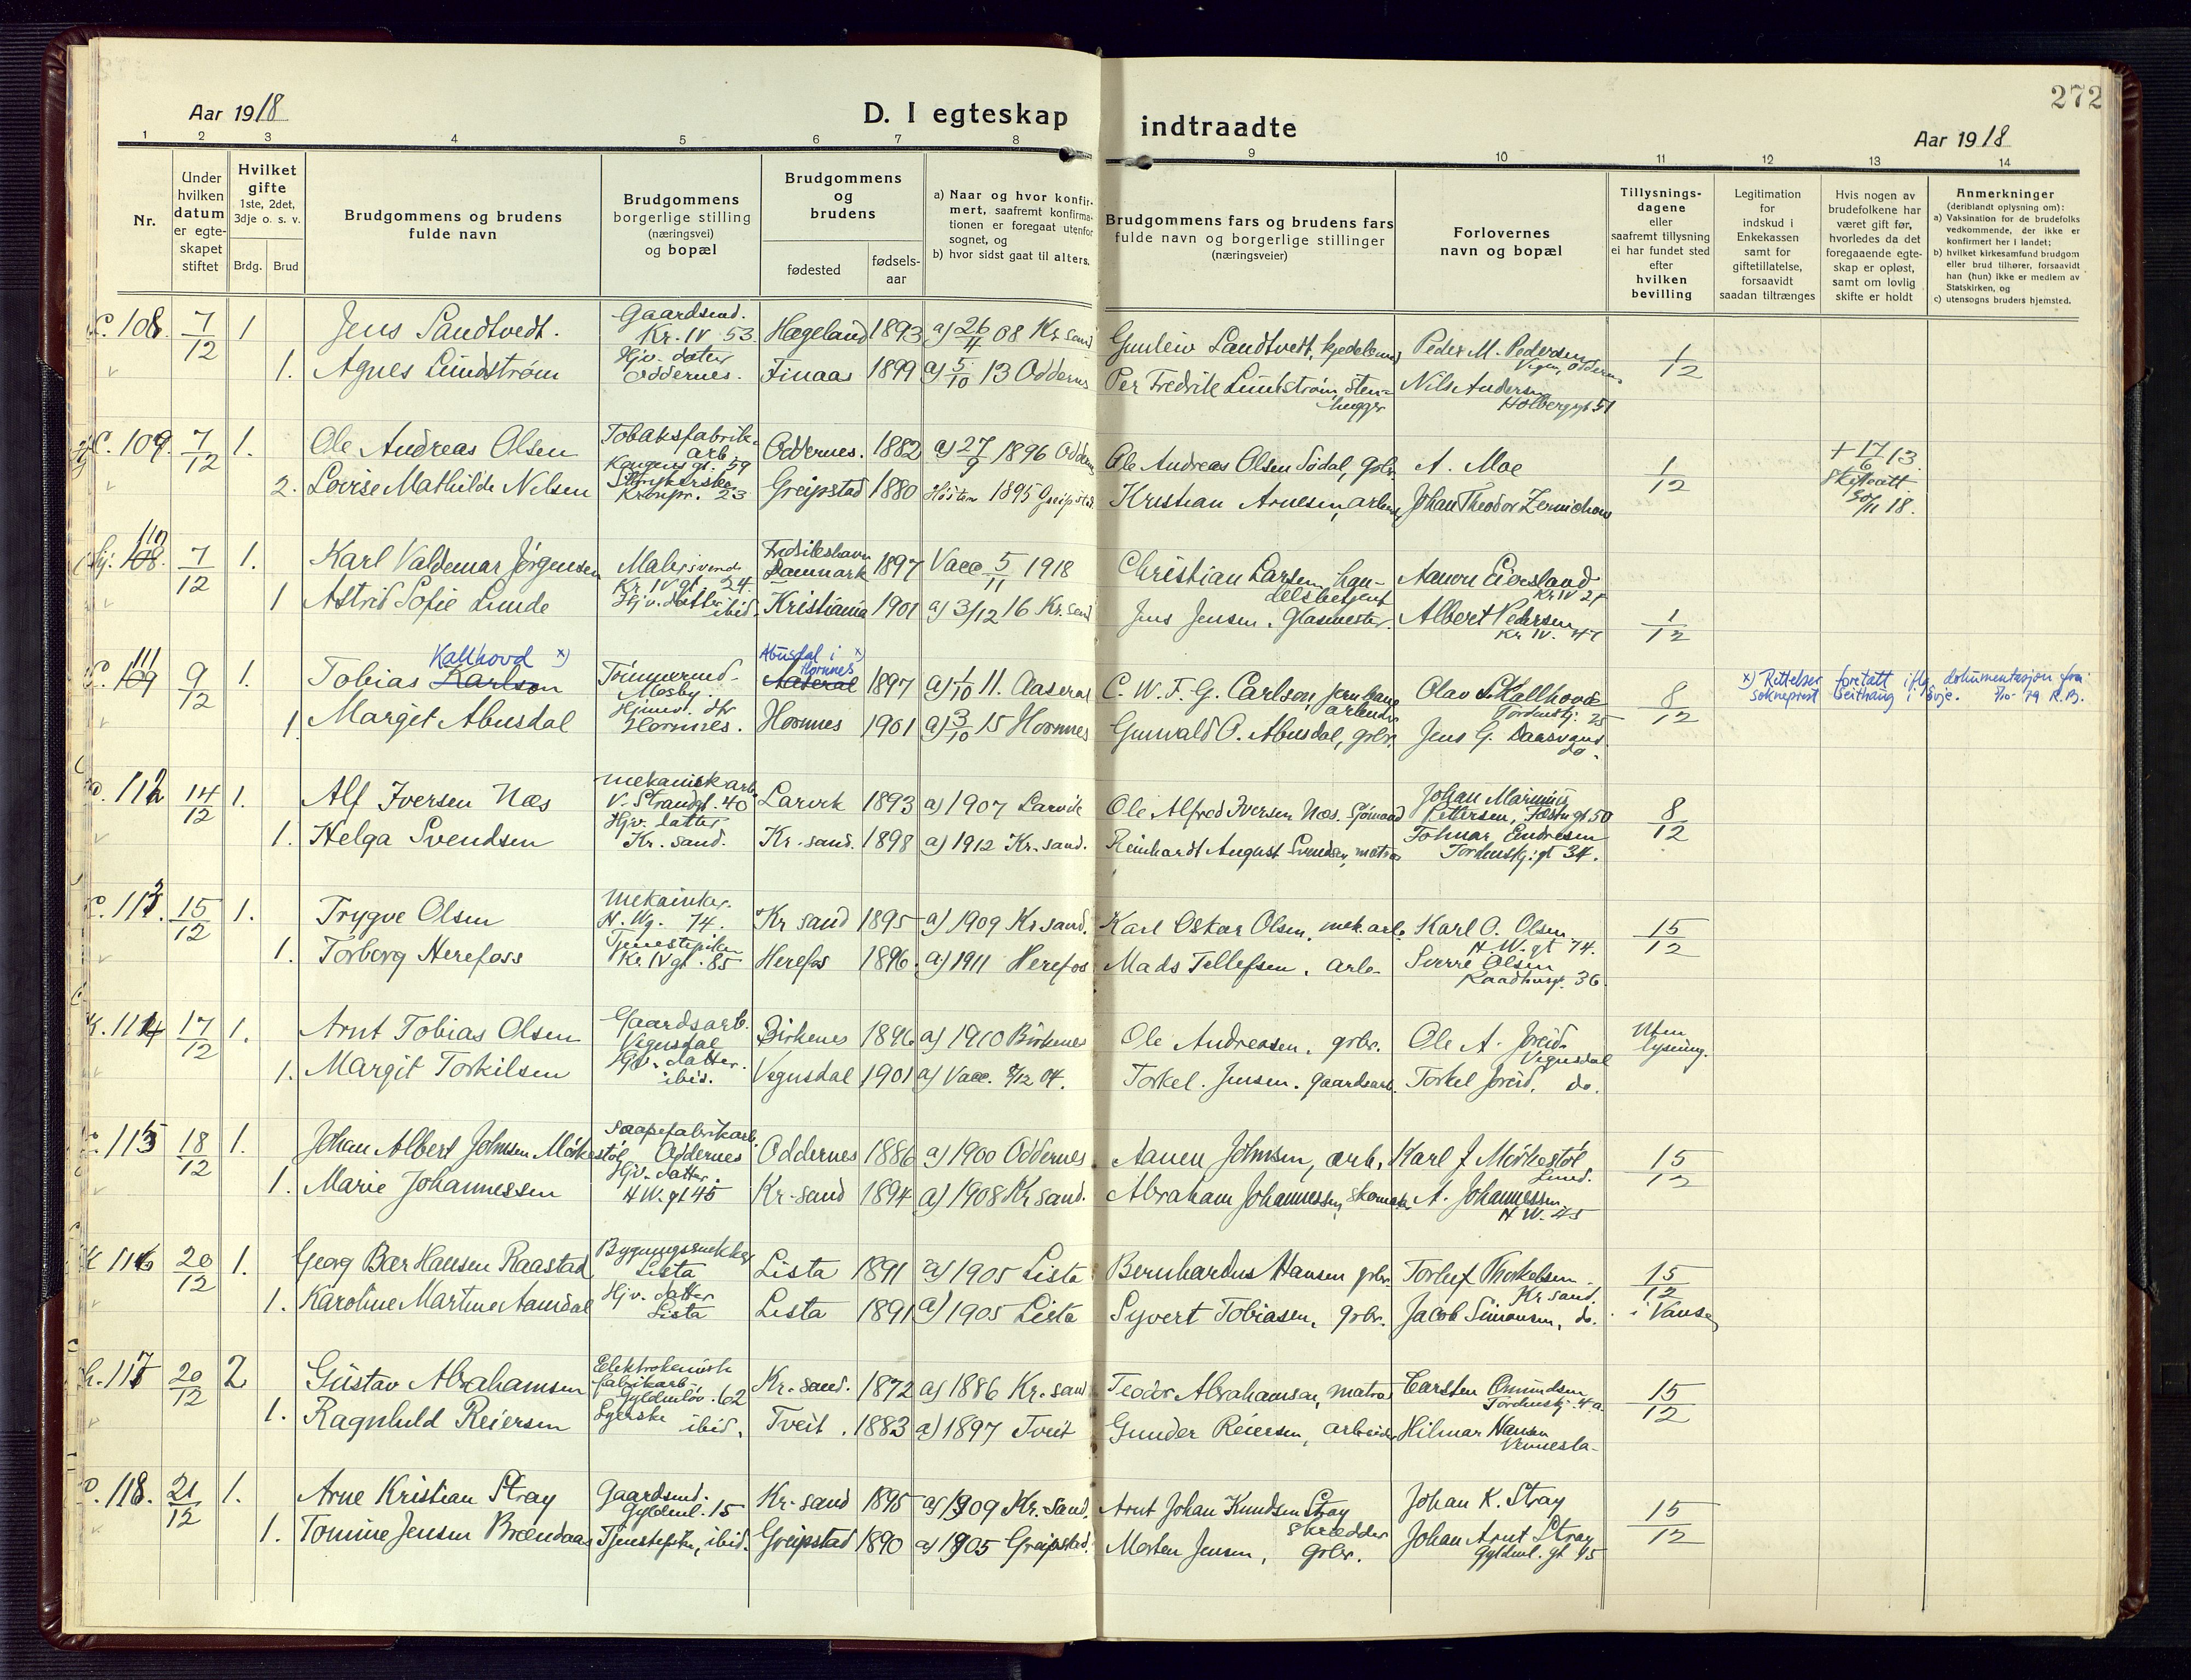 272
Aar 1918
D. I egteskap
indtraadte
Aar 1918
1 2 3 4 5 6 7 8 9 10 11 12 13 14
Nr.
Under hvilken datum er egteskapet stiftet
Hvilket gifte 1ste, 2det, 3dje o. s. v.
Brdg. Brud
Brudgommens og brudens fulde navn
Brudgommens borgerlige stilling (næringsvei) og bopæl
Brudgommens og brudens
fødested
fødsels-aar
a) Naar og hvor konfirmert, saafremt konfirmationen er foregaat utenfor sognet, og
b) hvor sidst gaat til alters.
Brudgommens fars og brudens fars fulde navn og borgerlige stillinger (næringsveier)
Forlovernes navn og bopæl
Tillysningsdagene eller saafremt tillysning ei har fundet sted efter hvilken bevilling
Legitimation for indskud i Enkekassen samt for giftetillatelse, forsaavidt saadan tiltrænges
Hvis nogen av brudefolkene har været gift før, hvorledes da det foregaaende egteskap er opløst, samt om lovlig skifte er holdt
Anmerkninger (deriblandt oplysning om):
a) Vaksination for de brudefolks vedkommende, der ikke er konfirmert her i landet;
b) hvilket kirkesamfund brudgom eller brud tilhører, forsaavidt han (hun) ikke er medlem av Statskirken, og
c) utensogns bruders hjemsted.
108 7/12 1 Jens Sandtvedt. Gaardsmd. Kr. IV 53. Hægeland 1893 a) 26/4 08 Kr sand Gunleiv Sandtvedt, Peder M. Pedersen 1/12
1. Agnes Lundstrøm Hjv. dater Oddernes. Finaas 1899 a) 5/10 13 Oddernes Per Fredrik Lundstrøm, stenhugger Nils Andersen Holbergsgt 51
109. 7/12 1. Ole Andreas Olsen Tobaksfabrik. arb. Kongens gt. 59 Oddernes. 1882 a) 27/9 1896 Oddernes Ole Andreas Olsen Sødal, grbr. A. Moe 1/12 + 17/6 13.
2. Lovise Mathilde Nilsen Strykerske Kronpr. 23 Greipstad 1880 Høsten 1895 Greipstad. Kristian Arnesen, arbeid. Johan Theodor 18.
110 108. 7/12 1. Karl Valdemar Jørgensen Malersvend Kr IV gt. 24. Fredrikshavn Danmark 1897 Vacc 5/11 1918 Christian Larsen, handelsbetjent Aanon Eiersland Kr IV 21 1/12
1 Astrid Sofie Lunde Hjv. datter ibid. Kristiania 1901 a) 3/12 16 Kr. sand Jens Jensen. Glasmester. Albert Pedersen Kr IV. 47
111 109 9/12 1. Tobias Karlson Kallhovd x) Tømmermd. Mosby. Abusdal i Hornnes x) Aaseral 1897 a) 1/10 11. Aaseral C. W. F. G. Carlson, jernbanearbeider Olav S. Kallhovd Tordenskj. 25 8/12
x) Rettelser foretatt ifølge dokumentasjon fra sokneprest Seithaug i Evje. R.B.
1 Margit Abusdal Hjemv. dtr Hornnes. Hornnes 1901 a) 3/10 15 Hornnes Gunvald O. Abusdal, grbr. Jens G. Daasvand. do.
112 14/12 1. Alf Iversen Næs mekanisk arb. V. Strandgt. 40 Larvik 1893 a) 1907 Larvik Ole Alfred Iversen Næs. Sjømand Johan Marinius Pettersen, Festn gt. 50 8/12
1. Helga Svendsen Hjv. datter Kr. sand. Kr.-sand. 1898 a) 1912 Kr.-sand. Reinhardt August Svendsen, matros Tolmar Endresen Tordenskj. gt 34.
113. 15/12 1. Trygve Olsen Mekaniker. H. Wg. 74. Kr sand 1895 a) 1909 Kr sand. Karl Oskar Olsen, mek arb. Karl O. Olsen H. W. gt 74. 15/12
1. Torborg Herefoss Tjenestepike Kr IV gt. 85 Herefos 1896. a) 1911 Herefos Mads Tellefsen, arb. Sverre Olsen Raadhusg. 36.
114 17/12 1. Arnt Tobias Olsen Gaardsarb. Vegusdal Birkenes 1896 a) 1910 Birkenes Ole Andreasen, grbr. Ole A. Joreid. Vegusdal Uten lysning.
1. Margit Torkilsen Hjv. datter. ibid. Vegusdal 1901 a) Vacc. 8/12 04. Torkel Jensen. gaardsarb. Torkel Joreid, do.
115 18/12 1. Johan Albert Johnsen Mørkestøl Saapefabrikarb. Oddernes Oddernes 1886 a) 1900 Oddernes Aanen Johnsen, arb. Karl J Mørkestøl Lund. 15/12
1. Marie Johannessen Hjv. datter. H W. gt 45 Kr-sand 1894 a) 1908 Kr sand. Abraham Johannessen, skomaker A. Johannessen H W. 45
116 20/12 1. Georg Bær Hansen Raastad Bygningssnekker Lista Lista 1891 a) 1905 Lista Bernhardus Hansen grbr. Torlef Thorkelsen. Kr sand. 15/12 i Vanse
1. Karoline Martine Aamdal Hjv. datter Lista Lista 1891 a) 1905 Lista Syvert Tobiasen, grbr. Jacob Simonsen, do.
117 20/12 2 Gustav Abrahamsen Elektrokemisk fabrikarb. Gyldenløv. 62 Kr.-sand. 1872 a) 1886 Kr.-sand Teodor Abrahamsen, matros Carsten Omundsen Tordenskj. 4 a. 15/12
1. Ragnhild Reiersen Syerske ibid. Tveit. 1883 a) 1897 Tveit Gunder Reiersen, arbeider Hilmar Hansen Vennesla
118. 21/12 1. Arne Kristian Stray Gaardsmd. Gyldenl. 15 Kr-sand 1895 a) 1909 Kr.-sand. Arnt Johan Knudsen Stray skrædder Johan K. Stray 15/12
1. Tomine Jensen Brændaas Tjenestepike, ibid. Greipstad 1890 a) 1905 Greipstad. Morten Jensen, Grbr. Johan Arnt Stray Gyldenl. gt 15